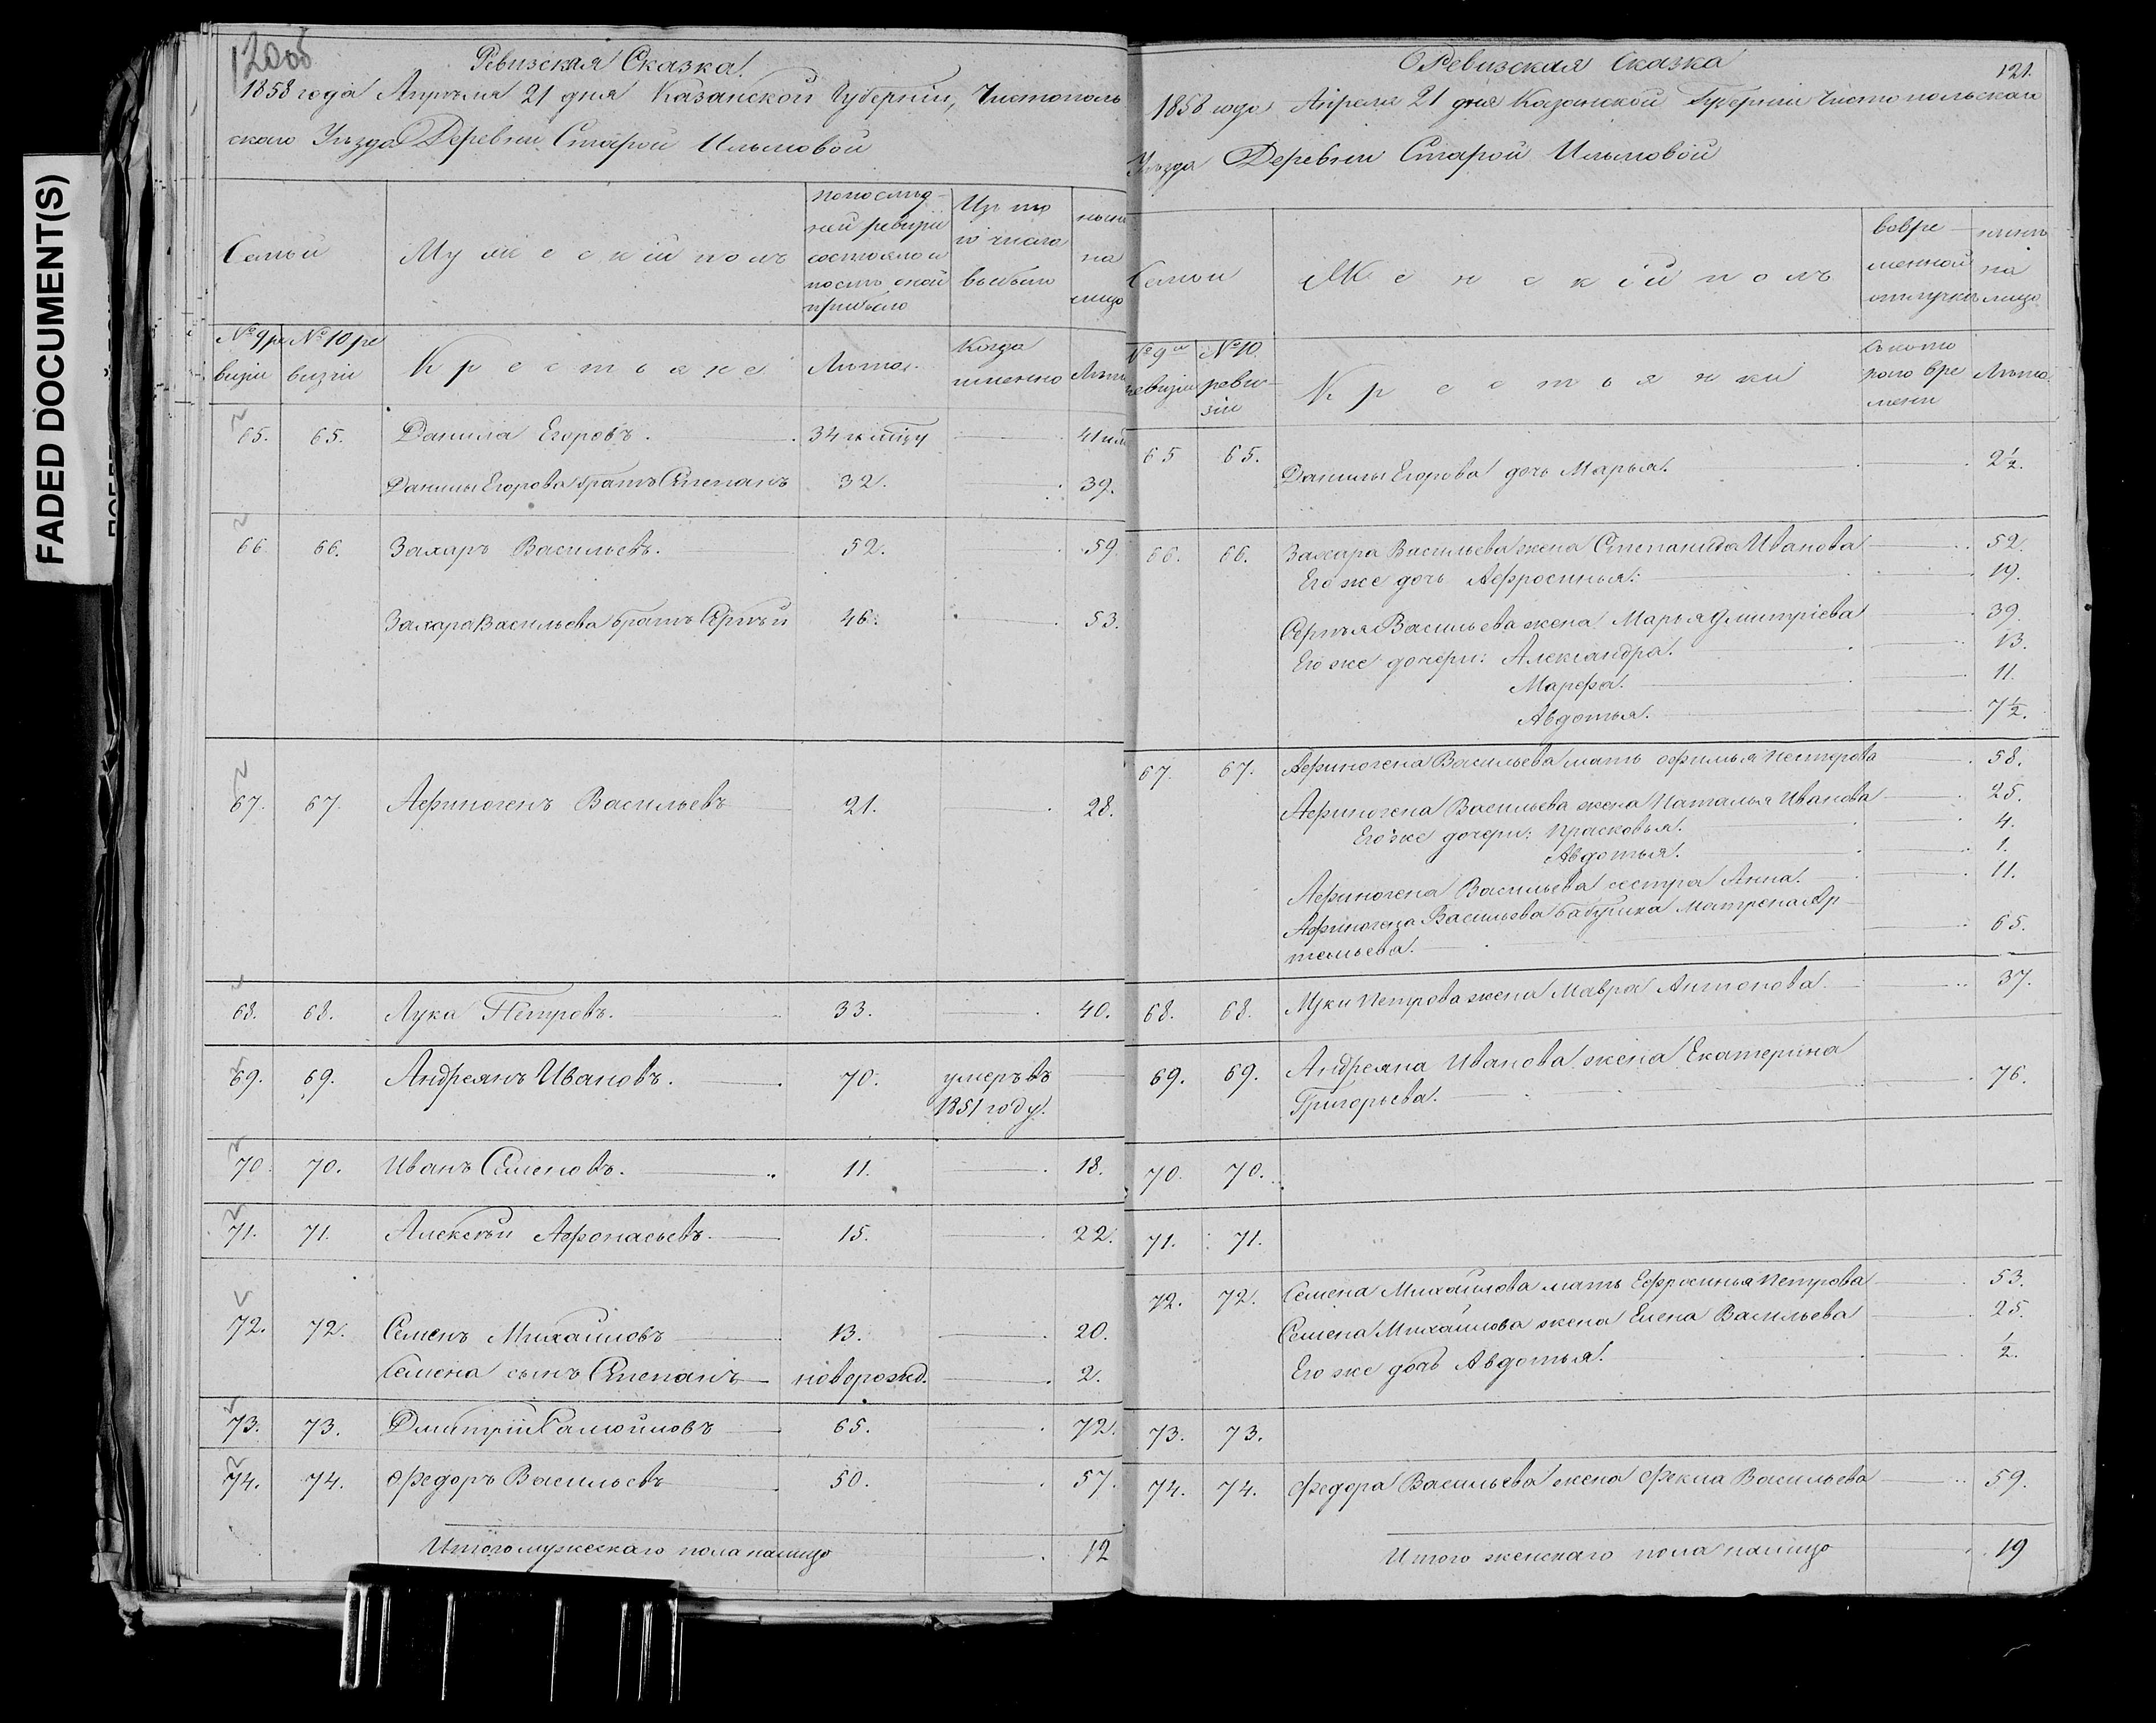 FADED DOCUMENT(S)
Ревизская Сказка.
1858 года Апрѣля 21 дня Казанской Губерніи, Чистополь
скаго Уѣзда Деревни Старой Ильмовой
Семьи
Мужескій полъ
по послѣд-
ней ревизіи
состояло и
послѣ оной
прибыло
Изъ то
го числа
выбыло
нынѣ
на
лицо
№ 9 ре
визіи
№ 10 ре
визіи
Крестьяне
Лѣта.
Когда
именно
Лѣта
65. 65. Данила Егоровъ. 34 41
Данилы Егорова братъ Степанъ 32. 39.
66 66. Захаръ Васильевъ. 52. 59
Захара Васильева братъ Сергѣй 46. 53.
67. 67. Афиногенъ Васильевъ 21. 28.
68. 68. Лука Петровъ. 33. 40.
69. 69. Андреянъ Ивановъ. 70. умеръ въ
1851 году.
70. 70. Иванъ Семеновъ. 11. 18.
71. 71. Алексѣй Афонасьевъ. 15. 22.
72. 72. Семенъ Михайловъ 13. 20.
Семена сынъ Степанъ новорожд. 2.
73. 73. Дмитрій Самойловъ 65. 72.
74. 74. Федоръ Васильевъ 50. 57.
Итого мужескаго пола налицо 12
Ревизская Сказка
121.
1858 года Апреля 21 дня Казанской Губерніи Чистопольскаго
Уѣзда Деревни Старой Ильмовой
Семьи
Женскій полъ
во вре-
менной
отлучкѣ
нынѣ
на
лицо
№ 9й
ревизіи
№ 10.
реви-
зіи
Крестьянки
съ кото
раго вре
мени
Лѣта.
65 65. Данилы Егорова дочь Марья. 2½.
66. 66. Захара Васильева жена Степанида Иванова 52.
Его же дочь Афросинья: 19.
Сергѣя Васильева жена Марья Дмитріева 39.
Его же дочери: Александра. 13.
Марфа. 11.
Авдотья. 7½.
67. 67. Афиногена Васильева мать Офимья Нестерова 58.
Афиногена Васильева жена Наталья Иванова 25.
Его же дочери: Прасковья. 4.
Авдотья. 1.
Афиногена Васильева сестра Анна. 11.
Афиногена Васильева бабушка Матрена Ар-
темьева. 65.
68. 68. Луки Петрова жена Мавра Антонова. 37.
69. 69. Андреяна Иванова жена Екатерина
Григорьева. 76.
70. 70.
71. 71.
72. 72. Семена Михайлова мать Ефросинья Петрова 53.
Семена Михайлова жена Елена Васильева 25.
Его же дочь Авдотья. ½.
73. 73.
74. 74. Федора Васильева жена Фекла Васильева 59.
Итого женскаго пола налицо 19